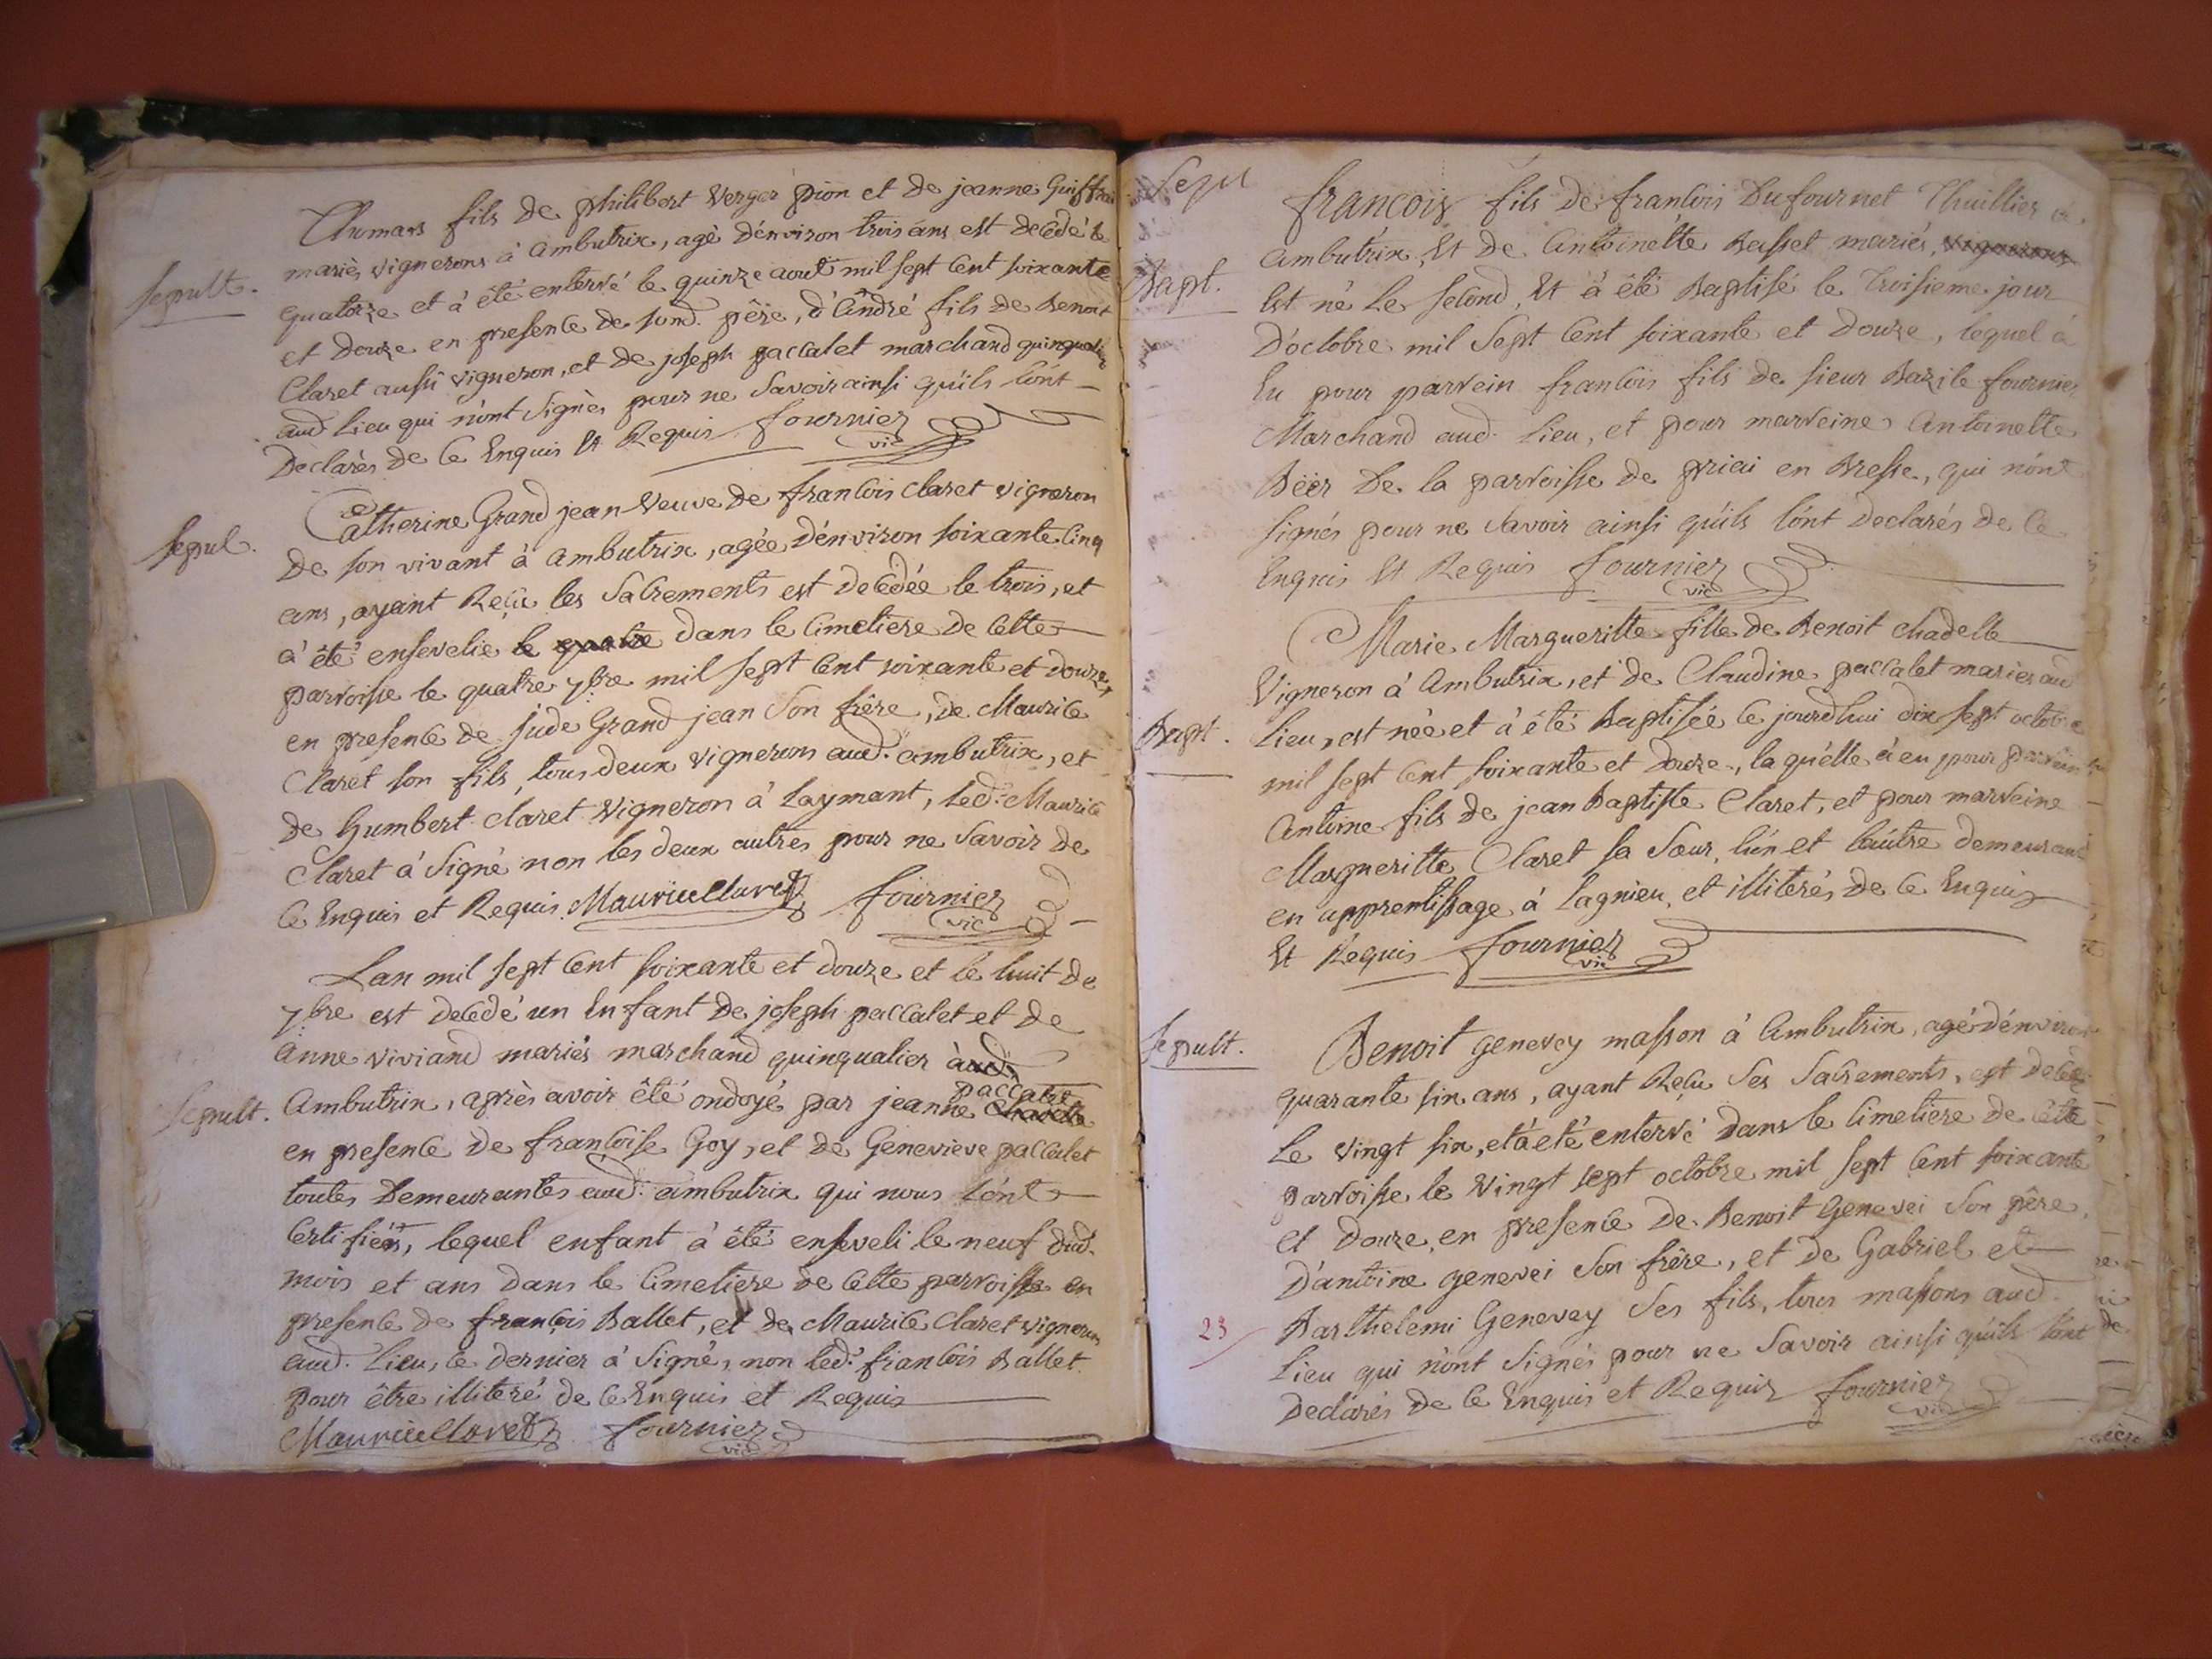 Thomas fils de philibert Verger pion et de jeanne Guiffrai
mariés vignerons à ambutrix, agé d'énviron trois áns est decedé le
sepult.
quatorze et à été enterré le quinze aout mil sept cent soixante
et douze en presence de sond. père, d'André fils de Benoit
Claret aussi vigneron, et de joseph paccalet marchand quinqualier
aud. Lieu qui n'ont signés pour ne savoir ainsi qu'ils l'ont
Declarés de ce Enquis et Requis fournier
vic
Catherine Grand jean veuve de francois claret vigneron
sepul.
de son vivant à ambutrix, agée d'énviron soixante cinq
ans, ayant Reçu les Sacrements est decedée le trois, et
à été ensevelie le quatre dans le cimetiere de cette
parroisse le quatre 7bre mil sept cent soixante et douze,
en presence de jude Grand jean son frère, de Maurice
Claret son fils, tous deux vignerons aud. ambutrix, et
de humbert claret vigneron à Laymant, led. Maurice
Claret à signé non les deux autres pour ne savoir de
ce Enquis et Requis Maurice Claret fournier
vic
Lan mil sept cent soixante et douze et le huit de
7bre est decedé un Enfant de joseph paccalet et de
anne viviand mariés marchand quinqualier à aud.
paccalet
sepult.
Ambutrix, après avoir été ondoyé par jeanne Chadelle
en presence de françoise Goy, et de Genevieve paccalet
toutes Demeurantes aud. ambutrix qui nous l'ont
certifiés, lequel enfant à été enseveli le neuf dud.
mois et ans dans le cimetiere de cette parroisse en
presence de françois Ballet, et de Maurice Claret vigneron
aud. Lieu, ce dernier à signé, non led. francois Ballet
pour être illiteré de ce Enquis et Requis
Maurice Claret fournier
vic
Sepul
francois fils de francois Dufournet Thuillier à
ambutrix, Et de Antoinette Basset mariés, vignerons
Bapt.
Est né Le second, Et à été Baptisé le Troisieme jour
D'octobre mil sept cent soixante et douze, lequel à
Eu pour parrein francois fils de sieur Bazile fournier
Marchand aud. Lieu, et pour marreine Antoinette
Béér De la parroisse de priai en Bresse, qui n'ónt
signés pour ne savoir ainsi qu'ils l'ónt declarés de ce
Enquis Et Requis fournier
vic
Marie Margueritte fille de Benoit chadelle
Vigneron à Ambutrix, et de Claudine paccalet mariés aud
Bapt.
Lieu, est née et à été Baptisée ce jourdhui dix sept octobre
mil sept cent soixante et douze, laquélle à eu pour parrein
Antoine fils de jean Baptiste Claret, et pour marreine
Margueritte Claret sa Sœur, lún et láutre demeurant
en apprentissage à Lagnieu, et illiterés de ce Enquis
Et Requis fournier
vic
sepult.
Benoit genevey masson à Ambutrix, agé dénviron
quarante six ans, ayant Reçu ses Sacrements, est decédé
Le vingt six, et à eté enterré dans le cimetiere de cette
parroisse le vingt sept octobre mil sept cent soixante
et douze, en presence de Benoit Genevei son père,
D'antoine genevei son frère, et de Gabriel et
23
Barthelemi Genevey ses fils, tous massons aud.
Lieu qui n'ont signés pour ne savoir ainsi qu'ils l'ont
Declarés de ce Enquis et Requis fournier
vic